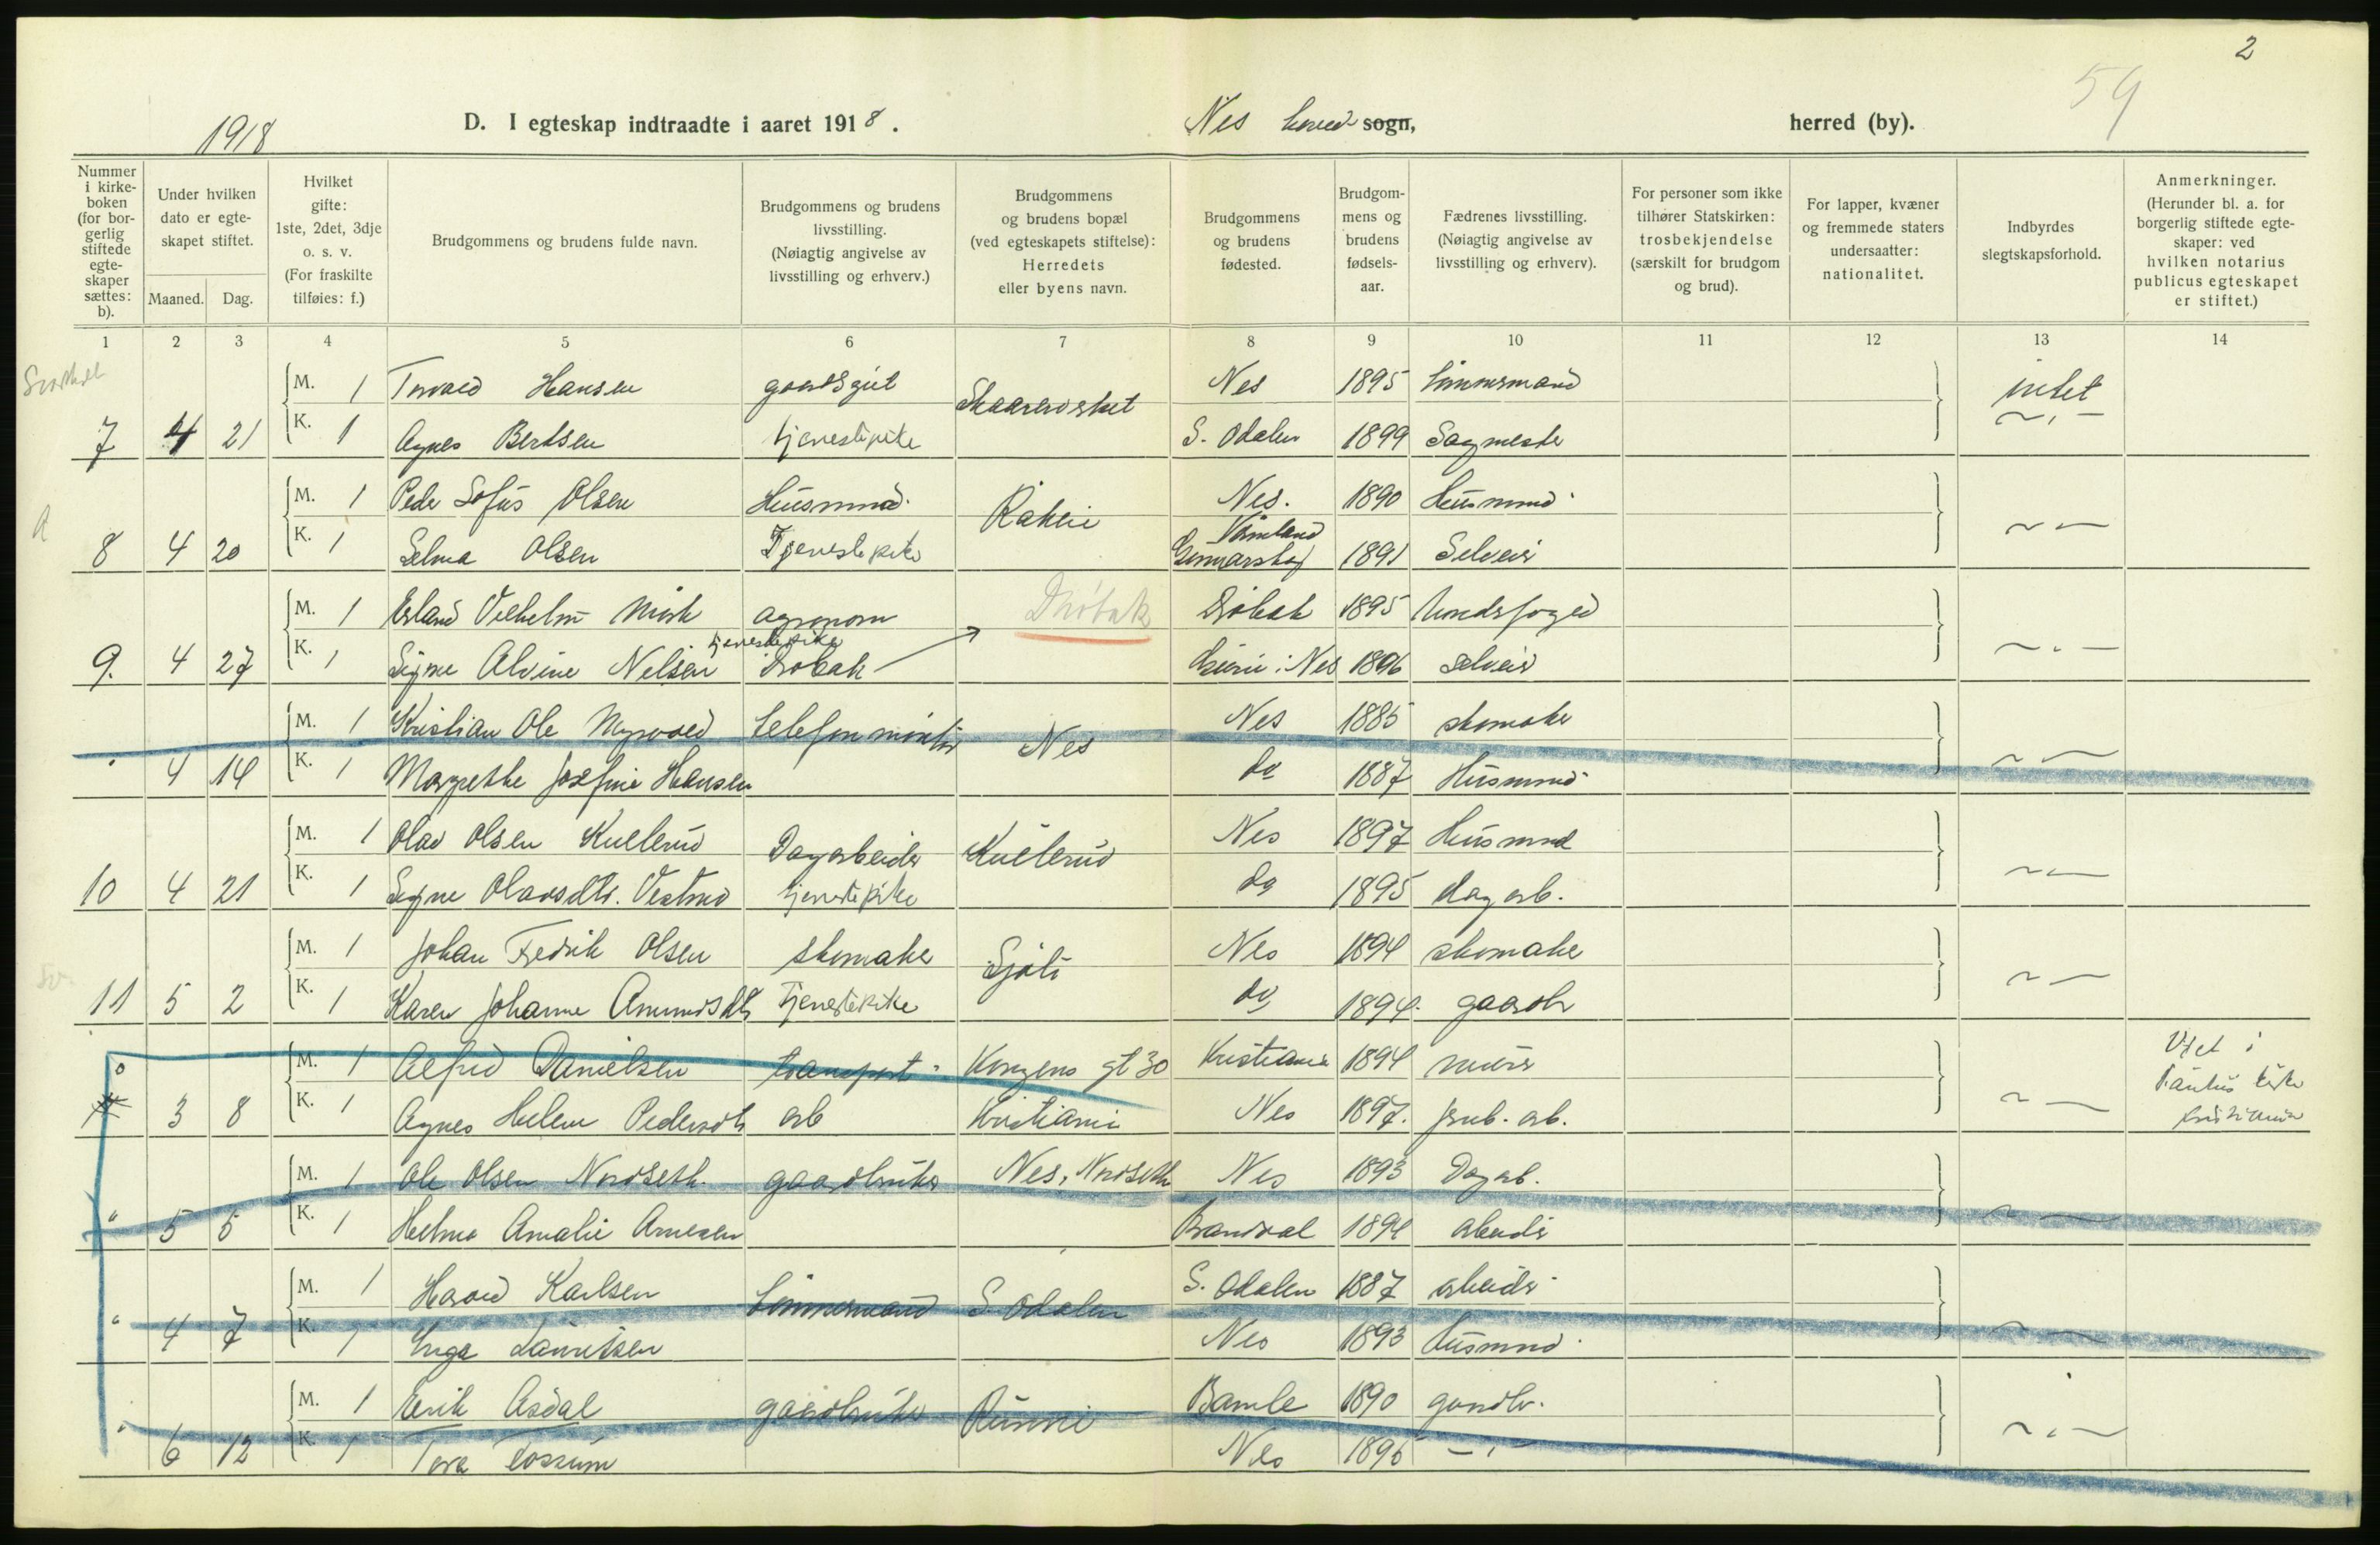 2
59
1918
D. I egteskap indtraadte i aaret 1918.
Nes herred sogn,
herred (by).
Nummer i kirkeboken (for borgerlig stiftede egteskaper sættes: b).
Under hvilken dato er egteskapet stiftet.
Maaned. Dag.
Hvilket gifte: 1ste, 2det, 3dje o. s. v. (For fraskilte tilføies: f.)
Brudgommens og brudens fulde navn.
Brudgommens og brudens livsstilling. (Nøiagtig angivelse av livsstilling og erhverv.)
Brudgommens og brudens bopæl (ved egteskapets stiftelse): Herredets eller byens navn.
Brudgommens og brudens fødested.
Brudgommens og brudens fødselsaar.
Fædrenes livsstilling. (Nøiagtig angivelse av livsstilling og erhverv).
For personer som ikke tilhører Statskirken: trosbekjendelse (særskilt for brudgom og brud).
For lapper, kvæner og fremmede staters undersaatter: nationalitet.
Indbyrdes slegtskapsforhold.
Anmerkninger. (Herunder bl. a. for borgerlig stiftede egteskaper: ved hvilken notarius publicus egteskapet er stiftet.)
1 2 3 4 5 6 7 8 9 10 11 12 13 14
M. 1 Torvald Hansen Nes 1895 tømmermand intet
7 4 21 K. 1 Agnes Berntsen tjenestepike S. Odalen 1899 Sagmester
M. 1 Peder Sofus Olsen Husmand Rakeie Nes. 1890 Husmand
8 4 20 K. 1 Selma Olsen Tjenestepike Värmland Gunnarskog 1891 Selveier
M. 1 Erland Vilhelm agronom Drøbak Drøbak 1895
tjenestepike
9. 4 27 K. 1 Signe Alvine Nelsen Drøbak i Nes 1896 selveier
M. 1 Kristian Ole Myrvold telefonmontør Nes Nes 1885 skomaker
" 4 14 K. 1 Margrethe Josefine Hansen do 1887 Husmand
M. 1 Olav Olsen Kullerud Dagarbeider Kullerud Nes 1897 Husmand
10 4 21 K. 1 Signe Olavsdtr. tjenestepike do 1895 dagarb.
M. 1 Johan Fredrik Olsen skomaker Sjøli Nes 1894 skomaker
11 5 2 K. 1 Karen Johanne Amundsdtr Tjenestepike do 1894. gaardbr
M. 1 Alfred Danielsen transport- Kongens gt 30 Kristiania 1894 murer Viet i
3 8 K. 1 Agnes Helene Pedersdtr arb Kristiania Nes 1897. jernb. arb. Paulus kirke Kristiania
M. 1 Ole Olsen Nordseth gaardbruker Nes, Nordseth Nes 1893 Dagarb.
" 5 5 K. 1 Helma Amalie Arnesen Brandval 1894 arbeider
M. 1 Harald Karlsen tømmermand S. Odalen S. Odalen 1887 arbeider
" 4 7 K. 1 Inga Lauritsen Nes 1893 husmand
M. 1 Erik Asdal gaardbruker Runni Bamle 1890 gaardbr.
" 6 12 K. 1 Tora Fossum Nes 1896 — " —